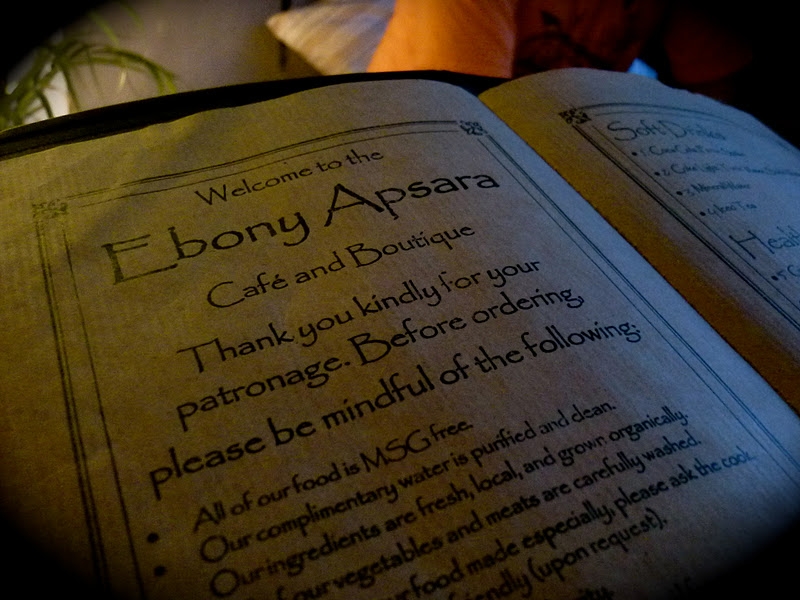 Welcome to the
Ebony Apsara
Café and Boutique
Thank you kindly for your
patronage. Before ordering,
please be mindful of the following:
• All of our food is MSG free.
• Our complimentary water is purified and clean.
Our ingredients are fresh, local, and grown organically.
of our vegetables and meats are carefully washed.
our food made especially, please ask the cook.
friendly (upon request).
Soft Drinks